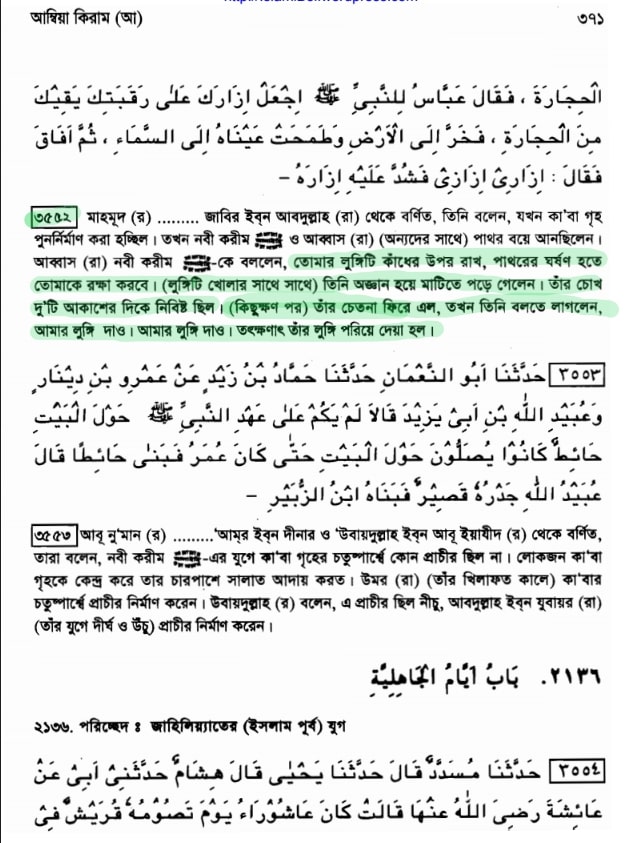 আম্বিয়া কিরাম (আ) ৩৭১
الْحِجَارَةَ ، فَقَالَ عَبَّاسٌ لِلنَّبِىِّ ﷺ اِجْعَلْ اِزَارَكَ عَلٰى رَقَبَتِكَ يَقِيْكَ
مِنَ الْحِجَارَةِ ، فَخَرَّ اِلَى الْاَرْضِ وَطَمَحَتْ عَيْنَاهُ اِلَى السَّمَاءِ ، ثُمَّ اَفَاقَ
فَقَالَ : اِزَارِىْ اِزَارِىْ فَشُدَّ عَلَيْهِ اِزَارَهُ –
৩৫৫২ মাহমূদ (র) ......... জাবির ইব্‌ন আবদুল্লাহ (রা) থেকে বর্ণিত, তিনি বলেন, যখন কা'বা গৃহ
পুনর্নির্মাণ করা হচ্ছিল। তখন নবী করীম ﷺ ও আব্বাস (রা) (অন্যদের সাথে) পাথর বয়ে আনছিলেন।
আব্বাস (রা) নবী করীম ﷺ-কে বললেন, তোমার লুঙ্গিটি কাঁধের উপর রাখ, পাথরের ঘর্ষণ হতে
তোমাকে রক্ষা করবে। (লুঙ্গিটি খোলার সাথে সাথে) তিনি অজ্ঞান হয়ে মাটিতে পড়ে গেলেন। তাঁর চোখ
দু'টি আকাশের দিকে নিবিষ্ট ছিল। (কিছুক্ষণ পর) তাঁর চেতনা ফিরে এল, তখন তিনি বলতে লাগলেন,
আমার লুঙ্গি দাও। আমার লুঙ্গি দাও। তৎক্ষণাৎ তাঁর লুঙ্গি পরিয়ে দেয়া হল।
٣٥٥٣ حَدَّثَنَا اَبُو النُّعْمَانِ حَدَّثَنَا حَمَّادُ بْنُ زَيْدٍ عَنْ عَمْرِو بْنِ دِيْنَارٍ
وَعُبَيْدِ اللّٰهِ بْنِ اَبِىْ يَزِيْدَ قَالاَ لَمْ يَكُمْ عَلٰى عَهْدِ النَّبِىِّ ﷺ حَوْلَ الْبَيْتِ
حَائِطٌ كَانُوْا يُصَلُّوْنَ حَوْلَ الْبَيْتِ حَتّٰى كَانَ عُمَرُ فَبَنٰى حَائِطًا قَالَ
عُبَيْدُ اللّٰهِ جَدْرُهُ قَصِيْرٌ فَبَنَاهُ ابْنُ الزُّبَيْرِ –
৩৫৫৩ আবূ নু'মান (র) .........'আম্‌র ইব্‌ন দীনার ও 'উবায়দুল্লাহ ইব্‌ন আবূ ইয়াযীদ (র) থেকে বর্ণিত,
তারা বলেন, নবী করীম ﷺ-এর যুগে কা'বা গৃহের চতুষ্পার্শ্বে কোন প্রাচীর ছিল না। লোকজন কা'বা
গৃহকে কেন্দ্র করে তার চারপাশে সালাত আদায় করত। উমর (রা) (তাঁর খিলাফত কালে) কা'বার
চতুষ্পার্শ্বে প্রাচীর নির্মাণ করেন। উবায়দুল্লাহ (র) বলেন, এ প্রাচীর ছিল নীচু, আবদুল্লাহ ইব্‌ন যুবায়র (রা)
(তাঁর যুগে দীর্ঘ ও উঁচু) প্রাচীর নির্মাণ করেন।
٢١٣٦. بَابُ اَيَّامُ الْجَاهِلِيَّةِ
২১৩৬. পরিচ্ছেদ ঃ জাহিলিয়্যাতের (ইসলাম পূর্ব) যুগ
٣٥٥٤ حَدَّثَنَا مُسَدَّدٌ قَالَ حَدَّثَنَا يَحْيٰى قَالَ هِشَامٌ حَدَّثَنِىْ اَبِىْ عَنْ
عَائِشَةَ رَضِىَ اللّٰهُ عَنْهَا قَالَتْ كَانَ عَاشُوْرَاءُ يَوْمَ تَصُوْمُهُ قُرَيْشٌ فِىْ